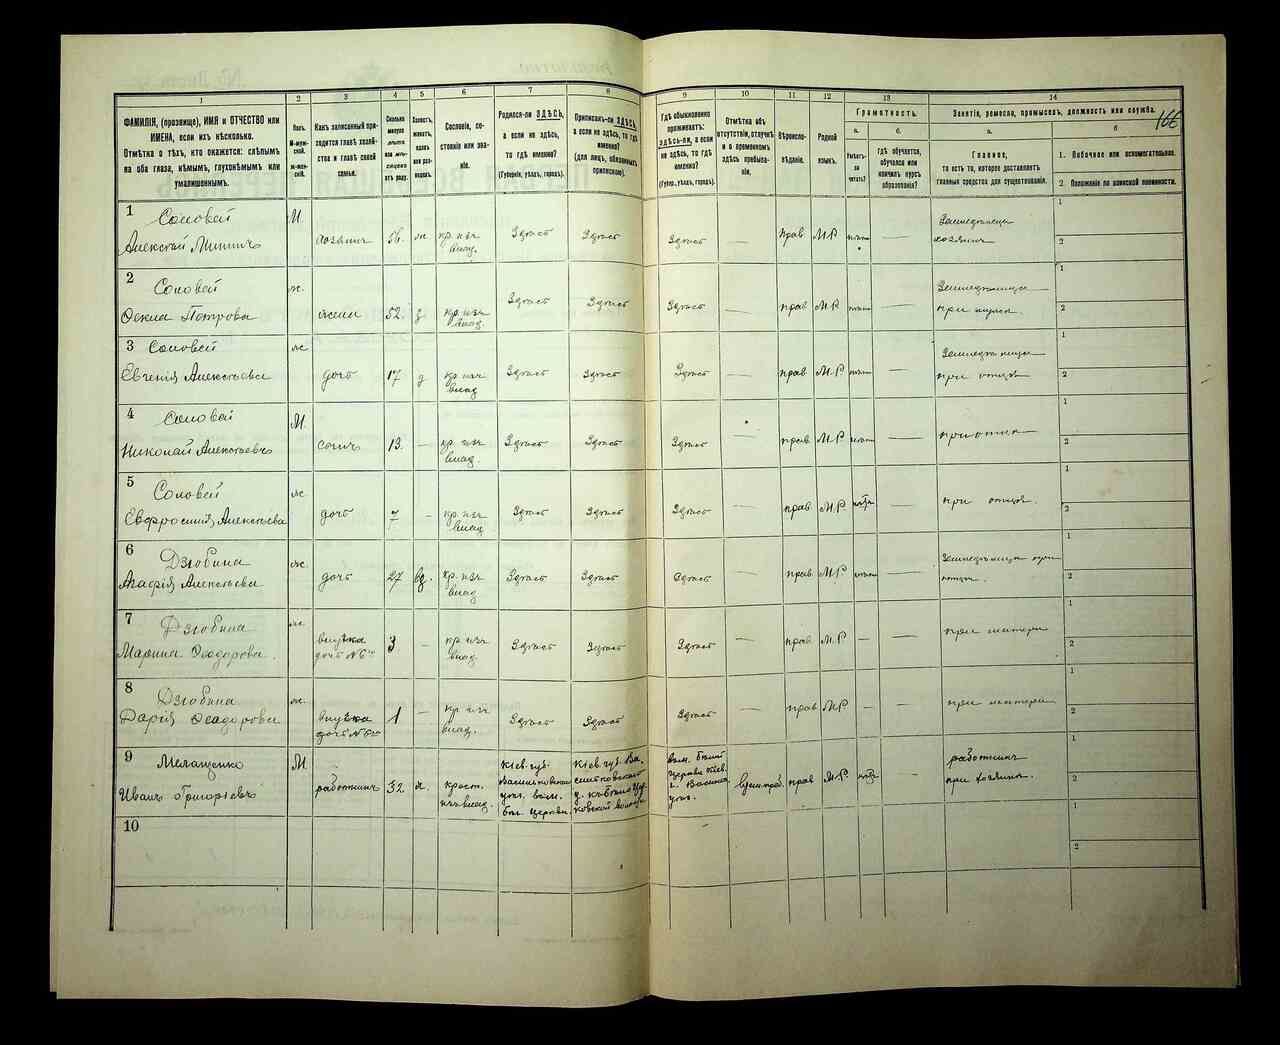 1
2
3
4
5
6
7
8
9
10
11
12
13
14
ФАМИЛІЯ, (прозвище), ИМЯ и ОТЧЕСТВО или
ИМЕНА, если ихъ нѣсколько.
Отмѣтка о тѣхъ, кто окажется: слѣпымъ
на оба глаза, нѣмымъ, глухонѣмымъ или
умалишеннымъ.
Полъ.
М-мужской.
ж-женскій.
Какъ записанный приходится главѣ хозяйства и главѣ своей семьи.
Сословіе, состояніе или званіе.
Родился-ли ЗДѢСЬ,
а если не здѣсь,
то гдѣ именно?
(Губернія, уѣздъ, городъ).
Приписанъ-ли ЗДѢСЬ,
а если не здѣсь, то гдѣ
именно?
(для лицъ, обязанныхъ
припискою).
Гдѣ обыкновенно
проживаетъ:
ЗДѢСЬ-ли, а если
не здѣсь, то гдѣ
именно?
(Губер., уѣздъ, городъ).
Отмѣтка объ
отсутствіи, отлучкѣ
и о временномъ
здѣсь пребываніи.
Вѣроисповѣданіе.
Родной
языкъ.
Грамотность
а.
б.
Умѣетъ-ли
читать?
гдѣ обучается,
обучался или
кончилъ курсъ
образованія?
Занятія, ремесло, промыселъ, должность или служба.
166
а.
б
Главное,
то есть то, которое доставляетъ
главныя средства для существованія.
1. Побочное или вспомогательное.
2 Положеніе по воинской повинности.
1 Соловей М.
Алексѣй хозяинъ 56. кр. изъ Здѣсь Здѣсь Здѣсь — прав М.Р —
влад. хозяинъ
2 Соловей ж.
Петрова жена 52. кр. изъ Здѣсь Здѣсь Здѣсь — прав М.Р — при мужѣ.
влад.
3 Соловей ж
Евгенія Алексѣева дочь 17 д кр изъ Здѣсь Здѣсь Здѣсь — прав М.Р — при отцѣ
влад
4 Соловей М.
Николай Алексѣевъ сынъ 13. — кр. изъ Здѣсь Здѣсь Здѣсь — прав М.Р — при отцѣ
влад.
5 Соловей ж.
Евфросинія Алексѣева дочь 7 — кр. изъ Здѣсь Здѣсь Здѣсь — прав М.Р — при отцѣ.
влад
6 Дзюбина ж.
Агафія Алексѣева дочь 27 вд. кр. изъ Здѣсь Здѣсь Здѣсь — прав М.Р. —
влад
7 Дзюбина ж.
Марина Ѳеодорова. внучка 3 — кр изъ Здѣсь Здѣсь Здѣсь — прав М.Р — — при матери
дочь №6го влад.
8 Дзюбина ж.
Дарія Ѳеодорова внучка 1 — кр изъ Здѣсь Здѣсь Здѣсь — прав М.Р — — при матери
дочь №6го влад.
9 Мелащенко М.
Иванъ Григорьевъ работникъ 32. крест. прав М.Р — работникъ
изъ влад. при хозяинѣ.
Кіев. губ.
Васильковскаго
Кіев. губ. Ва-
сильковскаго
10
1
2
1
2
1
2
1
2
1
2
1
2
1
2
1
2
1
2
1
2